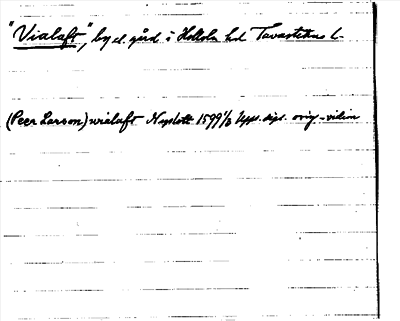 "Vialaft", by el. gård i Hollola hd Tavastehus l.
(Peer Larson) wialaft Nyslott 1599 1/3 Upps. dps. orig-vidim